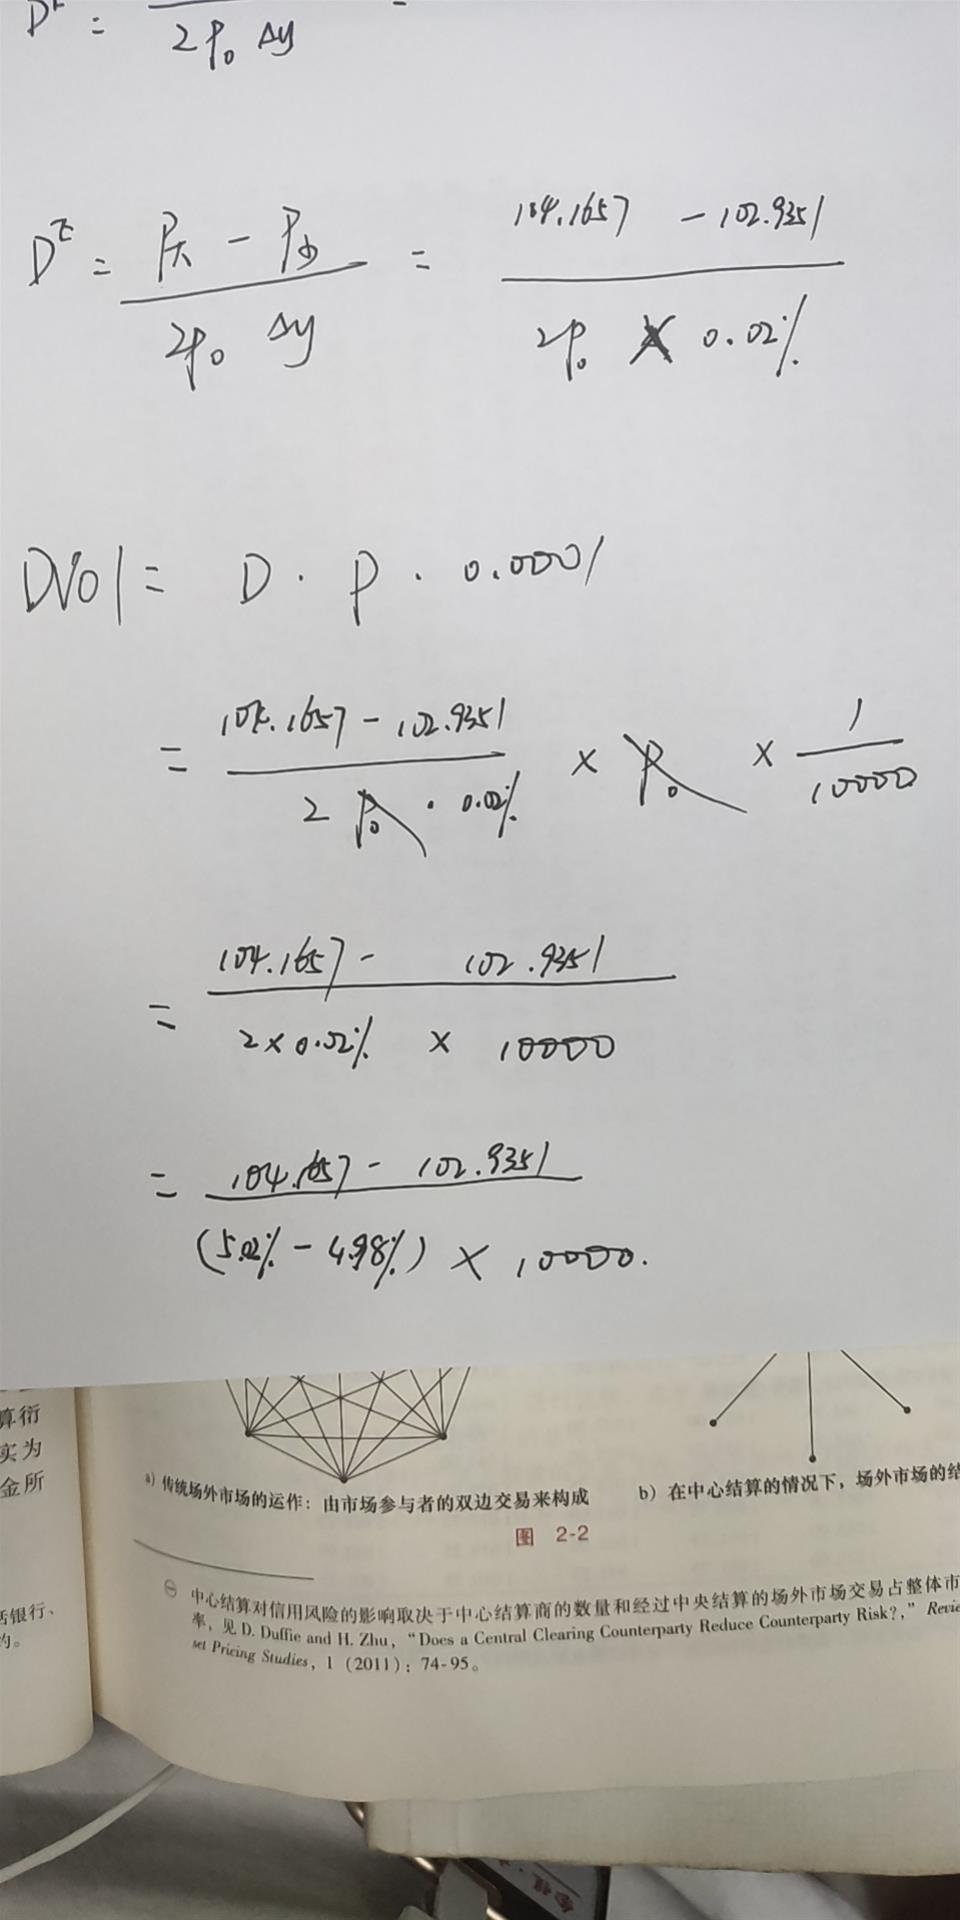 D^E = 2P₀ Δy
D^E = (P大 - P小) / (2P₀ Δy) = (104.1657 - 102.9351) / (2P₀ × 0.02%)
DV01 = D · P · 0.0001
= (104.1657 - 102.9351) / (2 P₀ · 0.02%) × P₀ × 1/10000
= (104.1657 - 102.9351) / (2×0.02% × 10000)
= (104.1657 - 102.9351) / ((5.02% - 4.98%) × 10000.
算衍
实为
金所
a) 传统场外市场的运作：由市场参与者的双边交易来构成
b) 在中心结算的情况下，场外市场的结
图 2-2
㊀ 中心结算对信用风险的影响取决于中心结算商的数量和经过中央结算的场外市场交易占整体市
率，见 D. Duffie and H. Zhu, “Does a Central Clearing Counterparty Reduce Counterparty Risk?,” Revie
set Pricing Studies, 1 (2011): 74-95。
银行、
的。